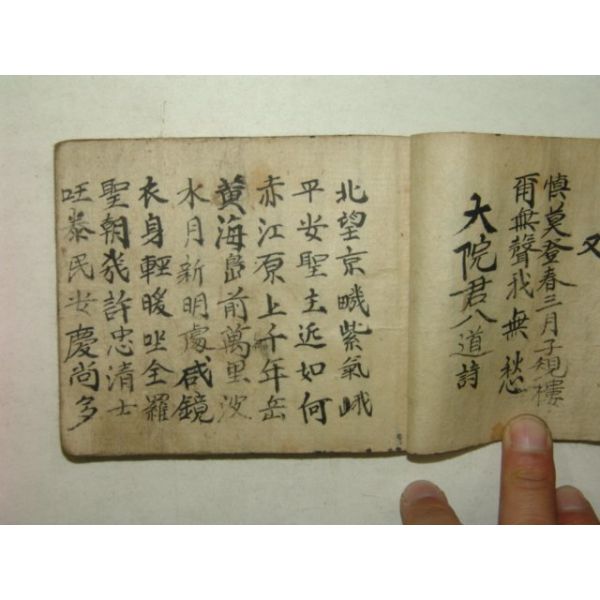 又
慎莫登春三月子規樓
爾無聲我無愁
大院君八道詩
北望京畿紫氣峨
平安聖主近如何
赤江原上千年岳
黃海島前萬里波
水月新明處咸鏡
衣身輕暖坐全羅
聖朝幾許忠清士
旺泰民安慶尚多